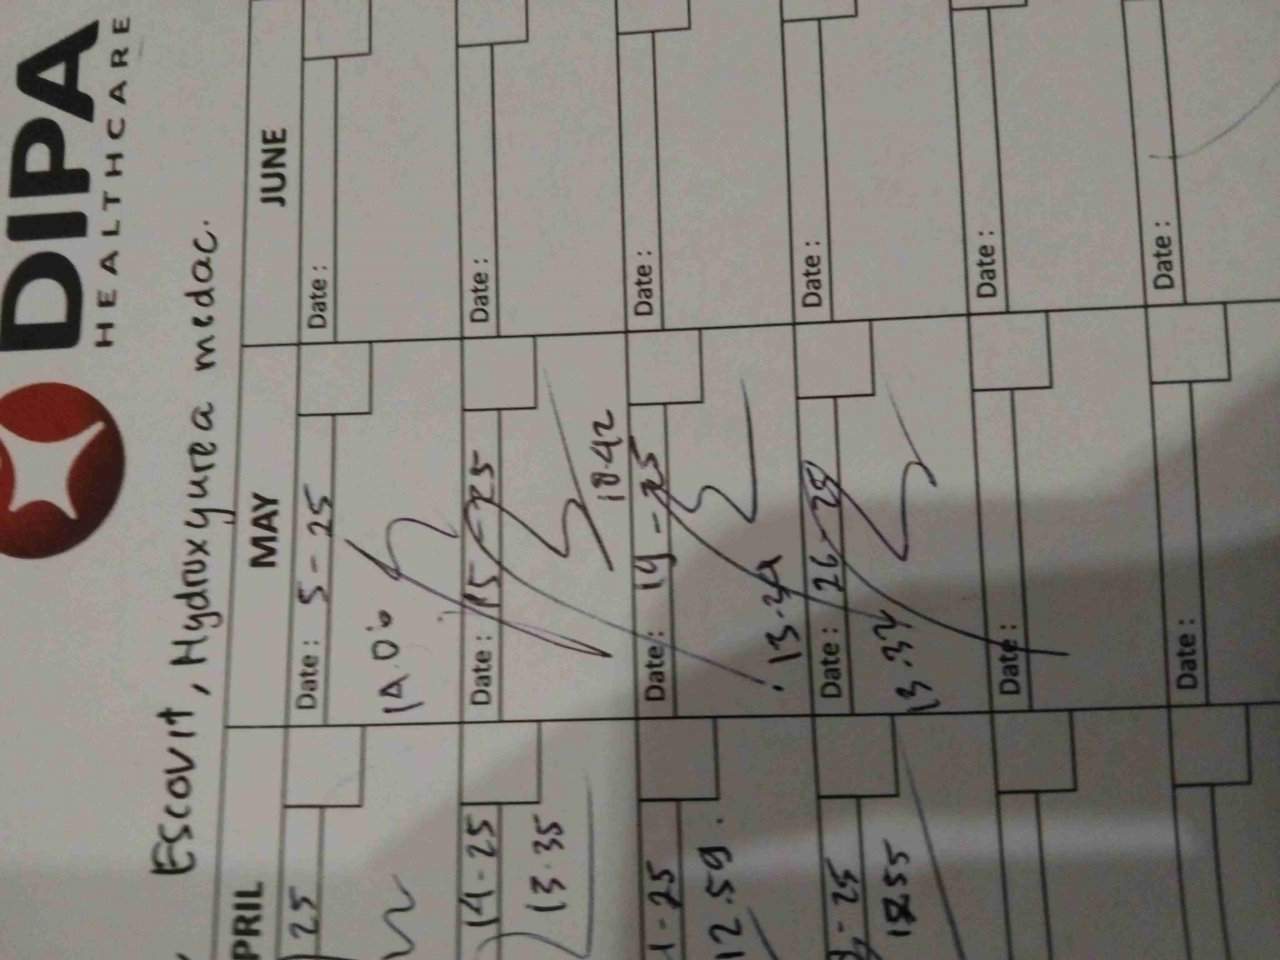 DIPA
HEALTHCARE
Escovit, Hydroxyurea medac.
PRIL MAY JUNE
25 Date: 5-25 Date:
14.06
14-25 Date: 15-25 Date:
13.35
18.42
1-25 Date: 19-25 Date:
12.59. 13.34
-25 Date: 26-25 Date:
13.37
Date: Date:
Date: Date: